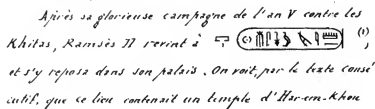 Après sa glorieuse campagne de l'an V contre les
Khitas, Ramsès II revint à (1),
et s'y reposa dans son palais. On voit, par le texte consé
cutif, que ce lieu contenait un temple d'Har-em-Khou